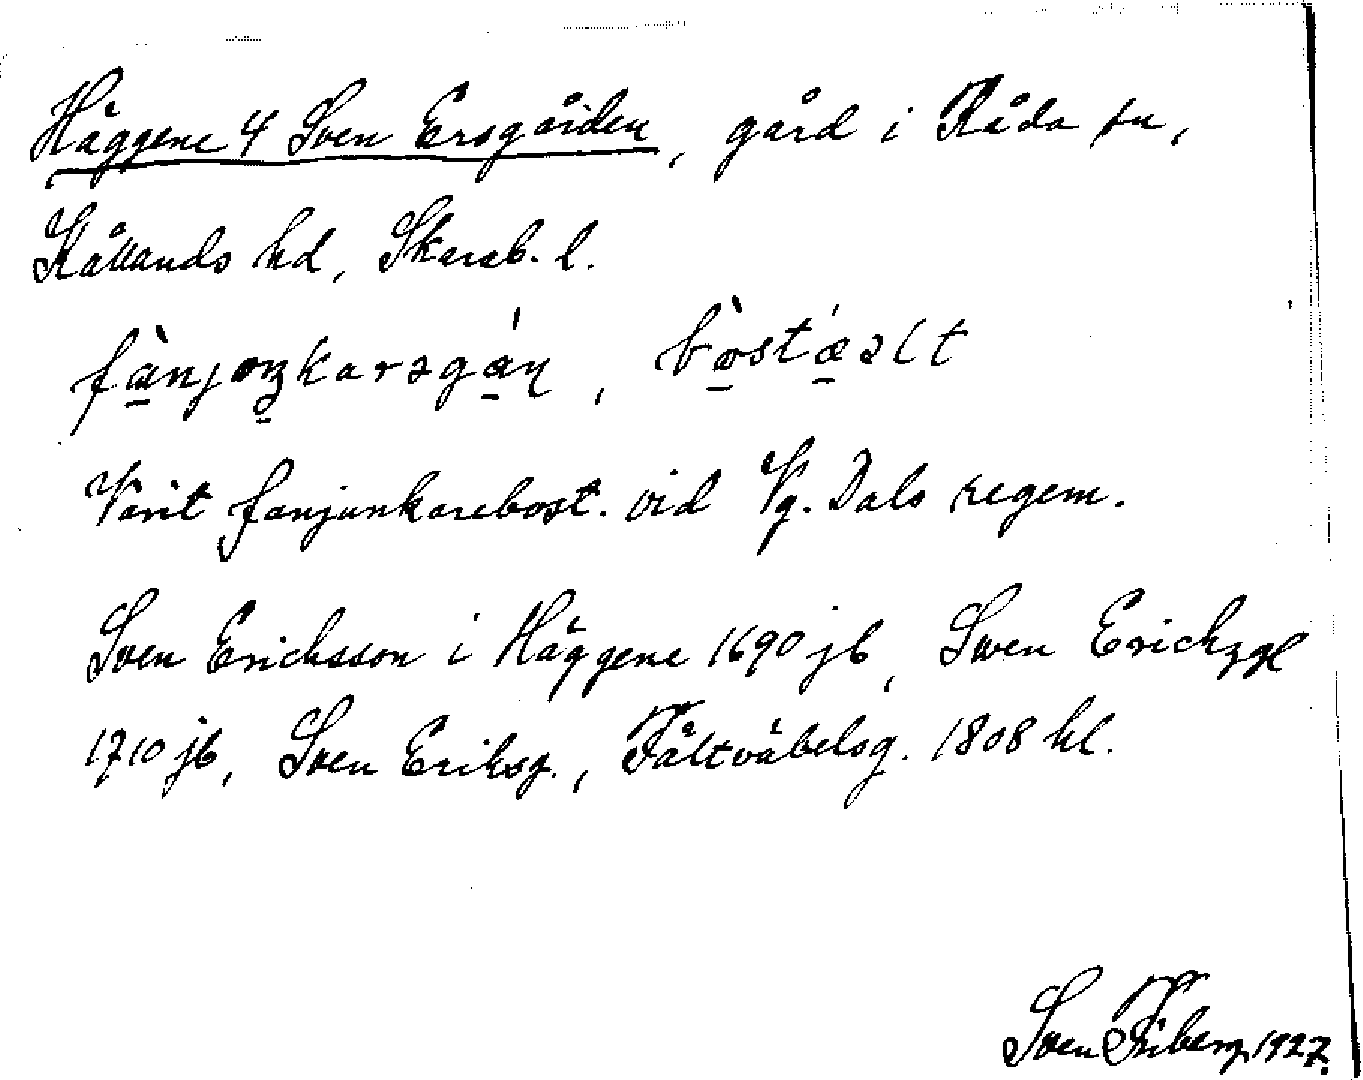 Häggene 4 Sven Ersgården, gård i Råda sn,
Kållands hd, Skarab. l.
Varit fanjunkarebost. vid Vg. Dals regem.
Sven Ericksson i Häggene 1690 jb, Swen Erichzgl
1710 jb, Sven Eriksg., Fältväbelsg. 1808 hl.
Sven Friberg 1927.